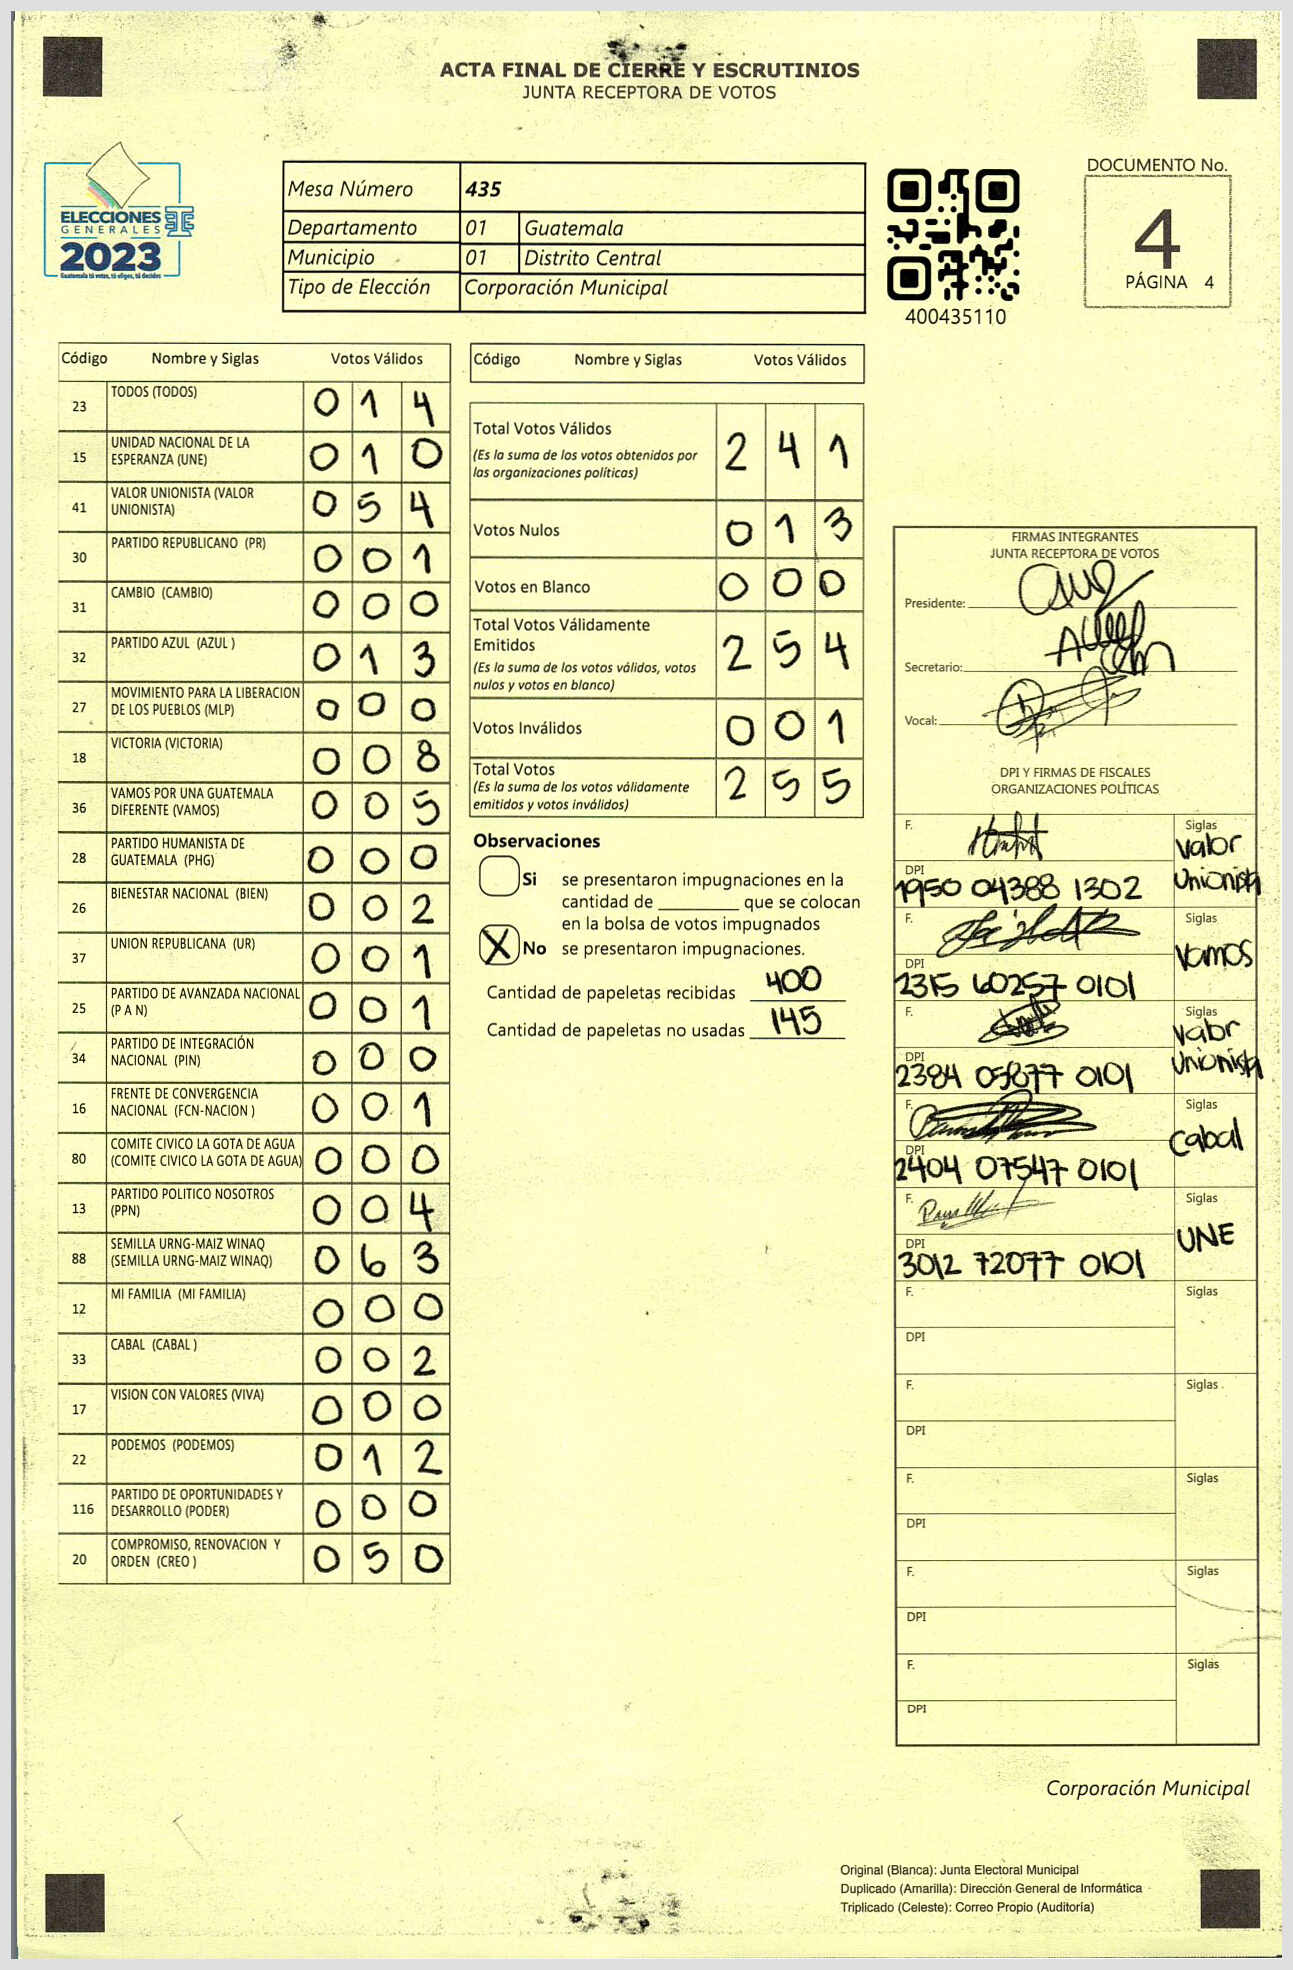 ACTA FINAL DE CIERRE Y ESCRUTINIOS
JUNTA RECEPTORA DE VOTOS
ELECCIONES
GENERALES
2023
Guatemala tú votas, tú eliges, tú decides
Mesa Número 435
Departamento 01 Guatemala
Municipio 01 Distrito Central
Tipo de Elección Corporación Municipal
400435110
DOCUMENTO No.
4
PÁGINA 4
Código Nombre y Siglas Votos Válidos
23 TODOS (TODOS) 0 1 4
15 UNIDAD NACIONAL DE LA
ESPERANZA (UNE) 0 1 0
41 VALOR UNIONISTA (VALOR
UNIONISTA) 0 5 4
30 PARTIDO REPUBLICANO (PR) 0 0 1
31 CAMBIO (CAMBIO) 0 0 0
32 PARTIDO AZUL (AZUL ) 0 1 3
27 MOVIMIENTO PARA LA LIBERACION
DE LOS PUEBLOS (MLP) 0 0 0
18 VICTORIA (VICTORIA) 0 0 8
36 VAMOS POR UNA GUATEMALA
DIFERENTE (VAMOS) 0 0 5
28 PARTIDO HUMANISTA DE
GUATEMALA (PHG) 0 0 0
26 BIENESTAR NACIONAL (BIEN) 0 0 2
37 UNION REPUBLICANA (UR) 0 0 1
25 PARTIDO DE AVANZADA NACIONAL
(P A N) 0 0 1
34 PARTIDO DE INTEGRACIÓN
NACIONAL (PIN) 0 0 0
16 FRENTE DE CONVERGENCIA
NACIONAL (FCN-NACION ) 0 0 1
80 COMITE CIVICO LA GOTA DE AGUA
(COMITE CIVICO LA GOTA DE AGUA) 0 0 0
13 PARTIDO POLITICO NOSOTROS
(PPN) 0 0 4
88 SEMILLA URNG-MAIZ WINAQ
(SEMILLA URNG-MAIZ WINAQ) 0 6 3
12 MI FAMILIA (MI FAMILIA) 0 0 0
33 CABAL (CABAL ) 0 0 2
17 VISION CON VALORES (VIVA) 0 0 0
22 PODEMOS (PODEMOS) 0 1 2
116 PARTIDO DE OPORTUNIDADES Y
DESARROLLO (PODER) 0 0 0
20 COMPROMISO, RENOVACION Y
ORDEN (CREO ) 0 5 0
Código Nombre y Siglas Votos Válidos
Total Votos Válidos 2 4 1
(Es la suma de los votos obtenidos por
las organizaciones políticas)
Votos Nulos 0 1 3
Votos en Blanco 0 0 0
Total Votos Válidamente
Emitidos 2 5 4
(Es la suma de los votos válidos, votos
nulos y votos en blanco)
Votos Inválidos 0 0 1
Total Votos 2 5 5
(Es la suma de los votos válidamente
emitidos y votos inválidos)
Observaciones
Si se presentaron impugnaciones en la
cantidad de ________ que se colocan
en la bolsa de votos impugnados
X No se presentaron impugnaciones.
Cantidad de papeletas recibidas 400
Cantidad de papeletas no usadas 145
FIRMAS INTEGRANTES
JUNTA RECEPTORA DE VOTOS
Presidente:
Secretario:
Vocal:
DPI Y FIRMAS DE FISCALES
ORGANIZACIONES POLÍTICAS
F. Siglas
Valor
DPI Unionista
1950 04388 1302
F. Siglas
Vamos
DPI
2315 60257 0101
F. Siglas
Valor
DPI Unionista
2384 05877 0101
F. Siglas
Cabal
DPI
2404 07547 0101
F. Siglas
UNE
DPI
3012 72077 0101
F. Siglas
DPI
F. Siglas
DPI
F. Siglas
DPI
F. Siglas
DPI
F. Siglas
DPI
Corporación Municipal
Original (Blanca): Junta Electoral Municipal
Duplicado (Amarilla): Dirección General de Informática
Triplicado (Celeste): Correo Propio (Auditoría)